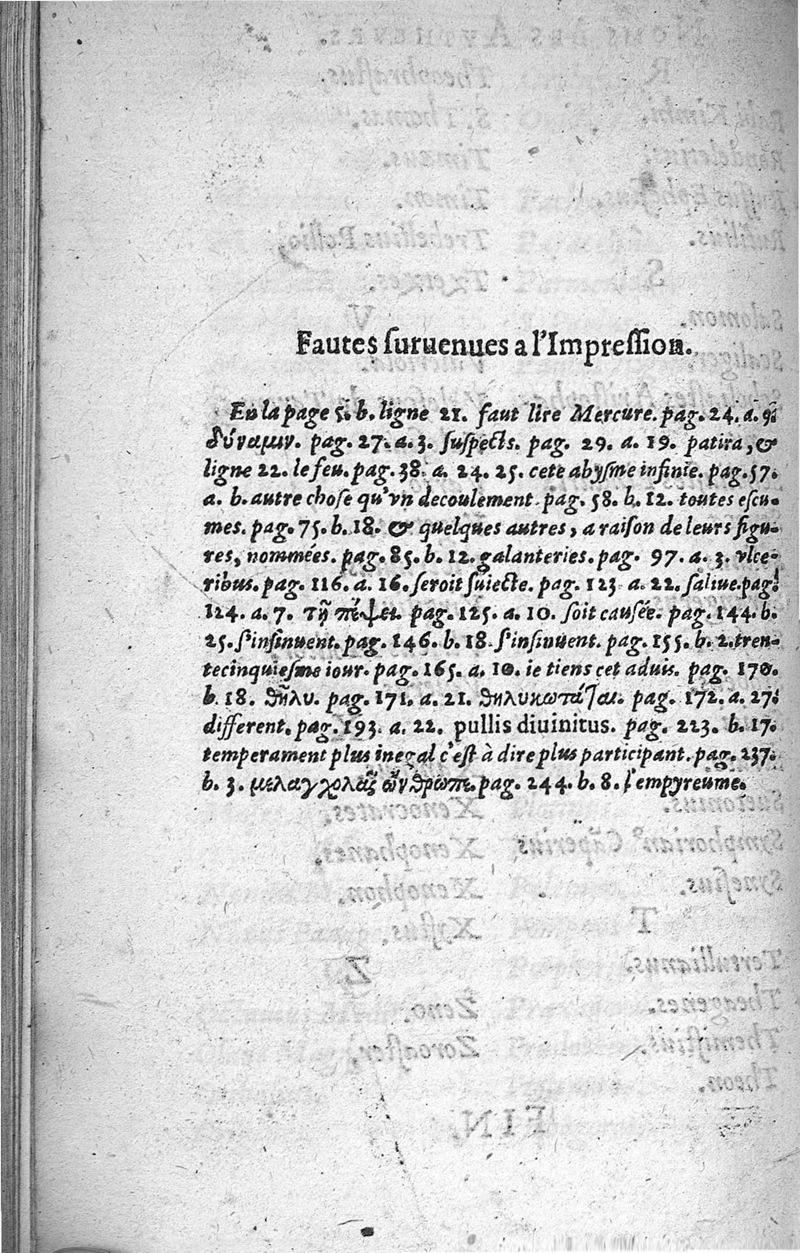 Fautes ſuruenues a l'Impreſſion.
En la page 5. b. ligne 21. faut lire Mercure. pag. 24. a. 9.
δύναμιν. pag. 27. a. 3. ſuſpects. pag. 29. a. 19. patira, &
ligne 22. le feu. pag. 38. a. 24. 25. cete abyſme infinie. pag. 57.
a. b. autre choſe qu'vn decoulement. pag. 58. b. 12. toutes eſcu-
mes. pag. 75. b. 18. & quelques autres, a raiſon de leurs figu-
res, nommées. pag. 85. b. 12. galanteries. pag. 97. a. 3. vlce-
ribus. pag. 116. a. 16. ſeroit ſuiecte. pag. 123 a. 22. ſaliue. pag.
124. a. 7. τῇ πέψει. pag. 125. a. 10. ſoit cauſée. pag. 144. b.
25. ſ'inſinuent. pag. 146. b. 18. ſ'inſinuent. pag. 155. b. 2. tren-
tecinquieſme iour. pag. 165. a. 10. ie tiens cet aduis. pag. 170.
b. 18. θῆλυ. pag. 171. a. 21. θηλυκωτάται. pag. 172. a. 27.
different. pag. 193. a. 22. pullis diuinitus. pag. 223. b. 17.
temperament plus inegal c'eſt à dire plus participant. pag. 237.
b. 3. pag. 244. b. 8. l'empyreume.